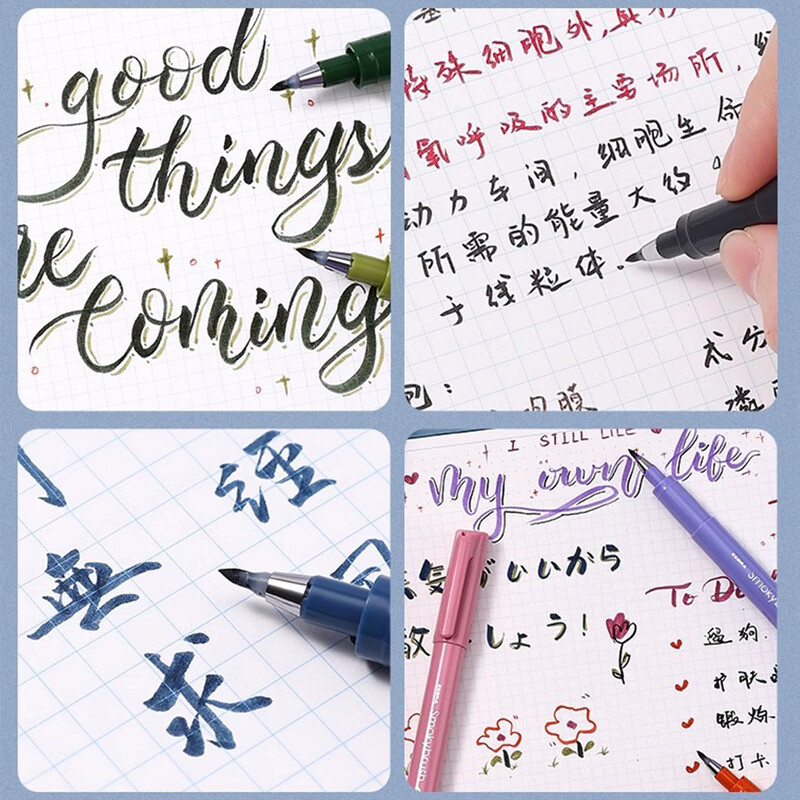 good
things
re
coming
特殊细胞外,真核
氧呼吸的主要场所,
动力车间,细胞生命
所需的能量大约
于线粒体.
式分
經
無
求
I STILL LIFE
my own life
天気がいいから
散歩しよう!
To Do
遛狗.
护肤
锻炼
打卡
ZEBRA smokybrush
ZEBRA smoky